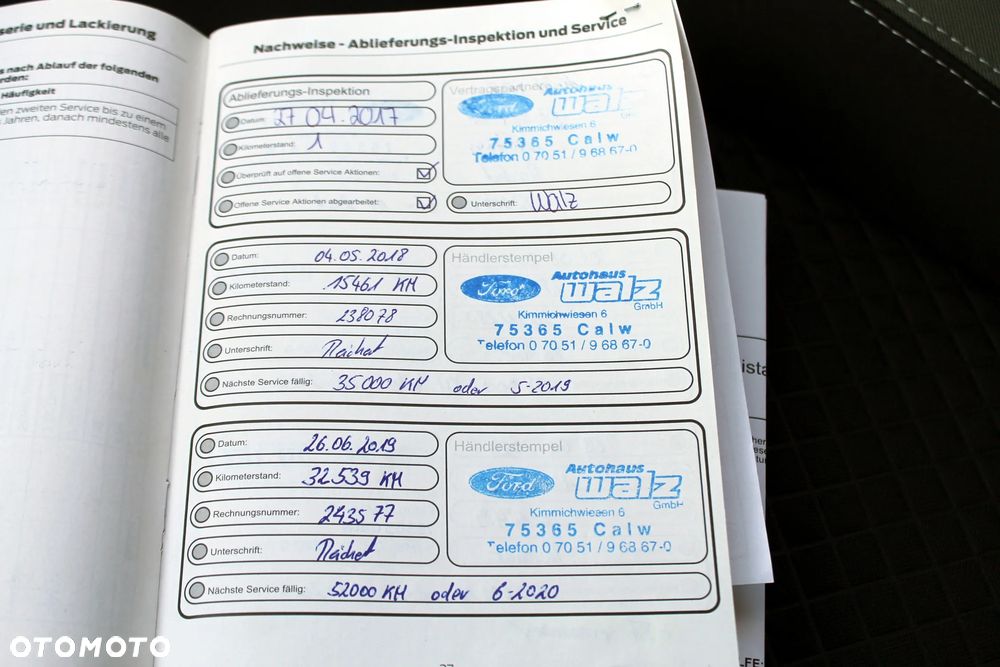 serie und Lackierung
s nach Ablauf der folgenden
rden:
Häufigkeit
en zweiten Service bis zu einem
Jahren, danach mindestens alle
Nachweise - Ablieferungs-Inspektion und Service
Ablieferungs-Inspektion
Datum: 27 04.2017
Kilometerstand: 1
Überprüft auf offene Service Aktionen:
Offene Service Aktionen abgearbeitet:
Vertragspartner
Ford Autohaus
walz
Kimmichwiesen 6
75365 Calw
Telefon 0 70 51 / 9 68 67-0
Unterschrift: Walz
Datum: 04.05.2018
Kilometerstand: 15461 KM
Rechnungsnummer: 238078
Unterschrift:
Nächste Service fällig: 35000 KM oder 5-2019
Händlerstempel
Ford Autohaus
walz
GmbH
Kimmichwiesen 6
75365 Calw
Telefon 0 70 51 / 9 68 67-0
Datum: 26.06.2019
Kilometerstand: 32539 KM
Rechnungsnummer: 243577
Unterschrift:
Nächste Service fällig: 52000 KM oder 6-2020
Händlerstempel
Ford Autohaus
walz
GmbH
Kimmichwiesen 6
75365 Calw
Telefon 0 70 51 / 9 68 67-0
ista
OTOMOTO